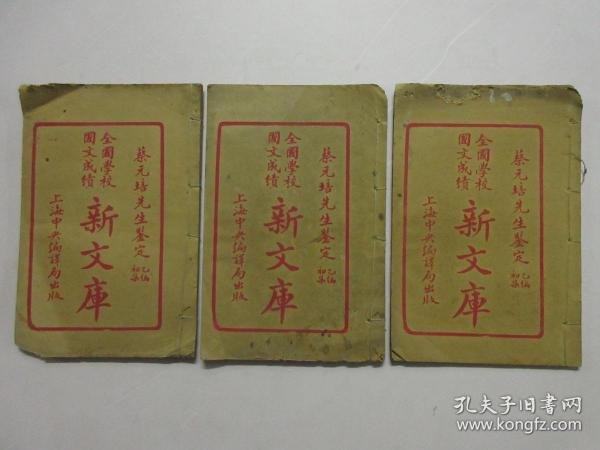 蔡元培先生鑒定 乙编初集
全國學校國文成績
新文庫
上海中央編譯局出版
蔡元培先生鑒定 乙编初集
全國學校國文成績
新文庫
上海中央編譯局出版
蔡元培先生鑒定 乙编初集
全國學校國文成績
新文庫
上海中央編譯局出版
孔夫子旧書网
www.kongfz.com